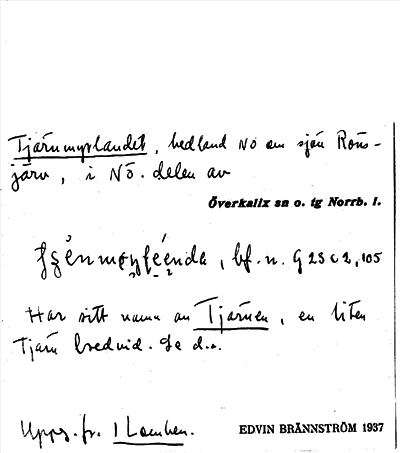 Tjärnmyrlandet, hedland NO om sjön Röns-
järv, i NÖ. delen av
Överkalix sn o. tg Norrb. l.
bf. n. G 23 c 2, 105
Har sitt namn av Tjärnen, en liten
Tjärn bredvid. Se d. o.
Uppg. fr.
EDVIN BRÄNNSTRÖM 1937